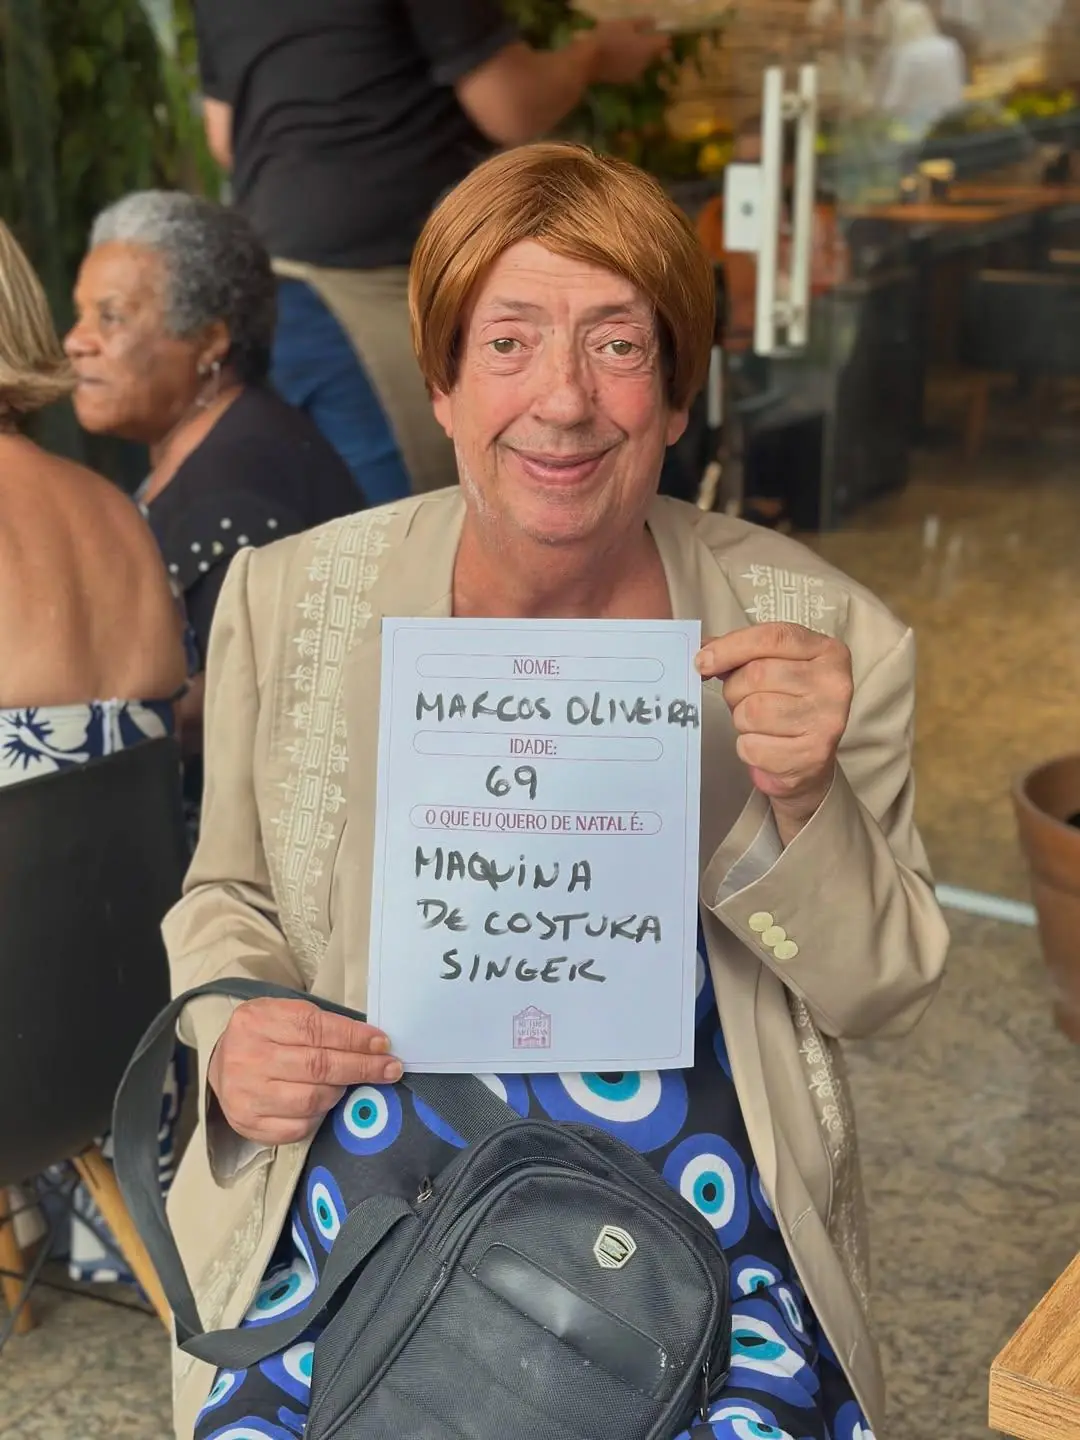 NOME:
MARCOS OLIVEIRA
IDADE:
69
O QUE EU QUERO DE NATAL É:
MAQUINA
DE COSTURA
SINGER
RETIRO
ARTISTAS